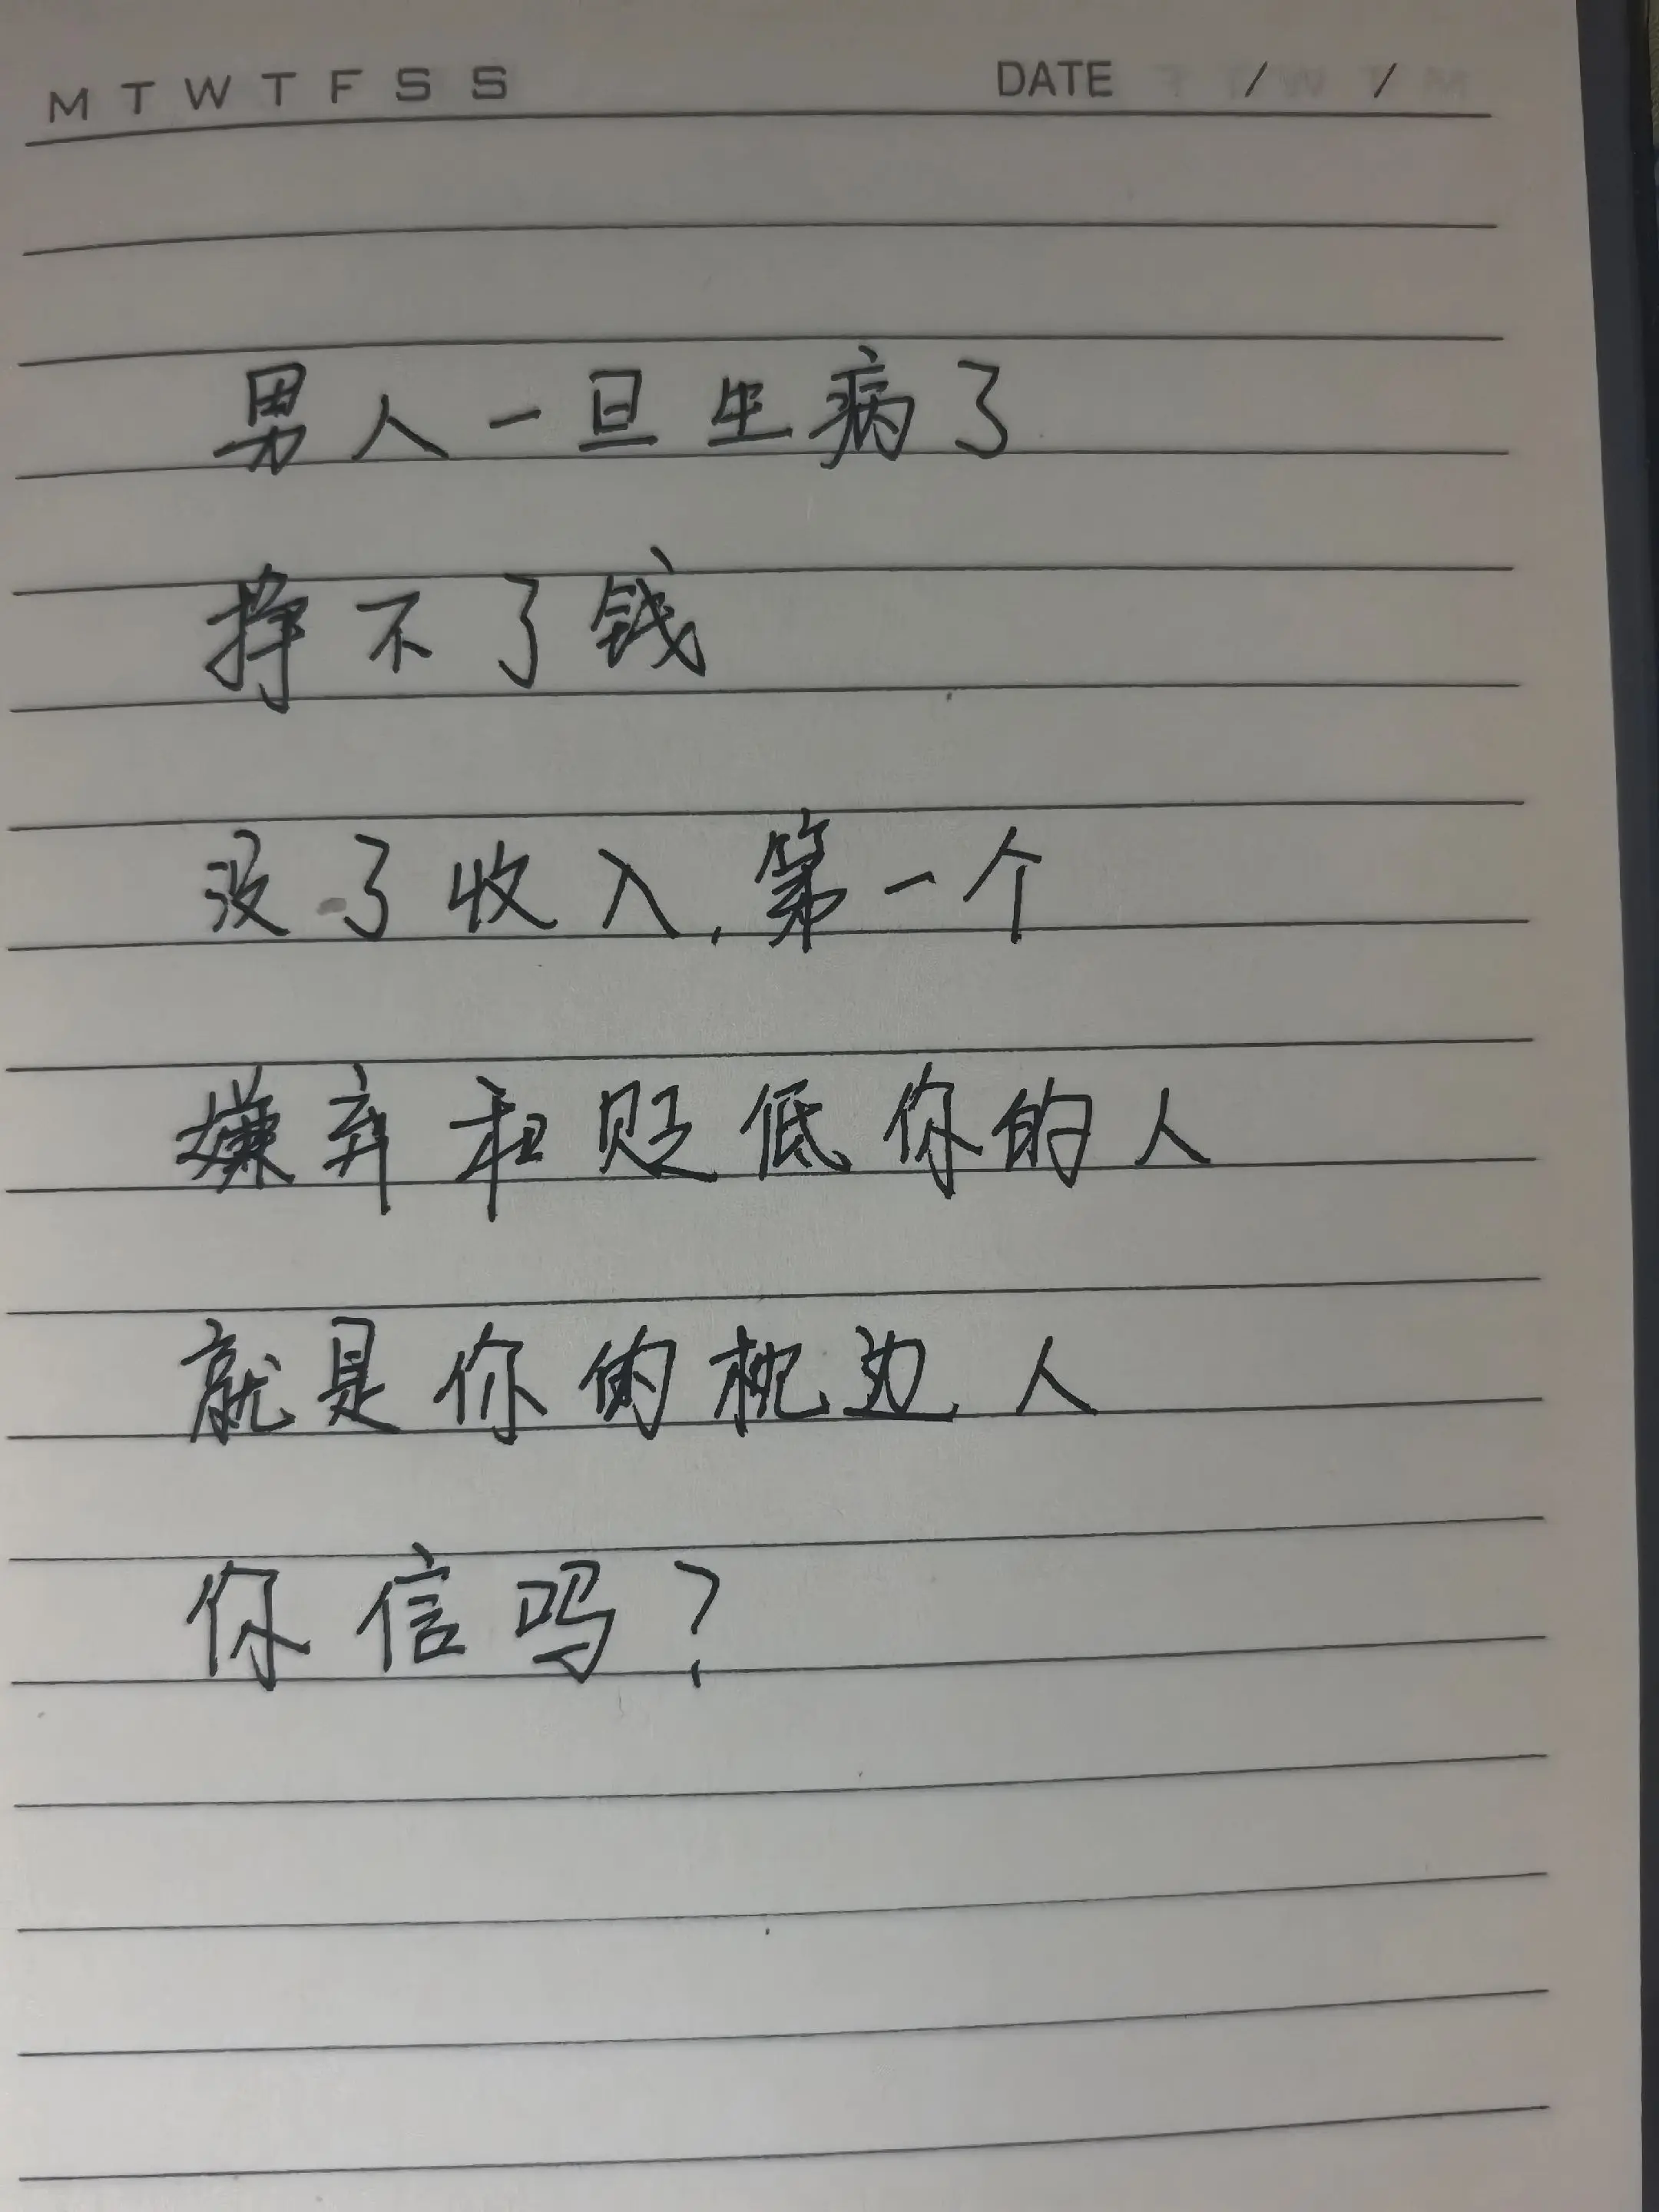 M T W T F S S DATE / /
男人一旦生病了
挣不了钱
没了收入,第一个
嫌弃和贬低你的人
就是你的枕边人
你信吗?